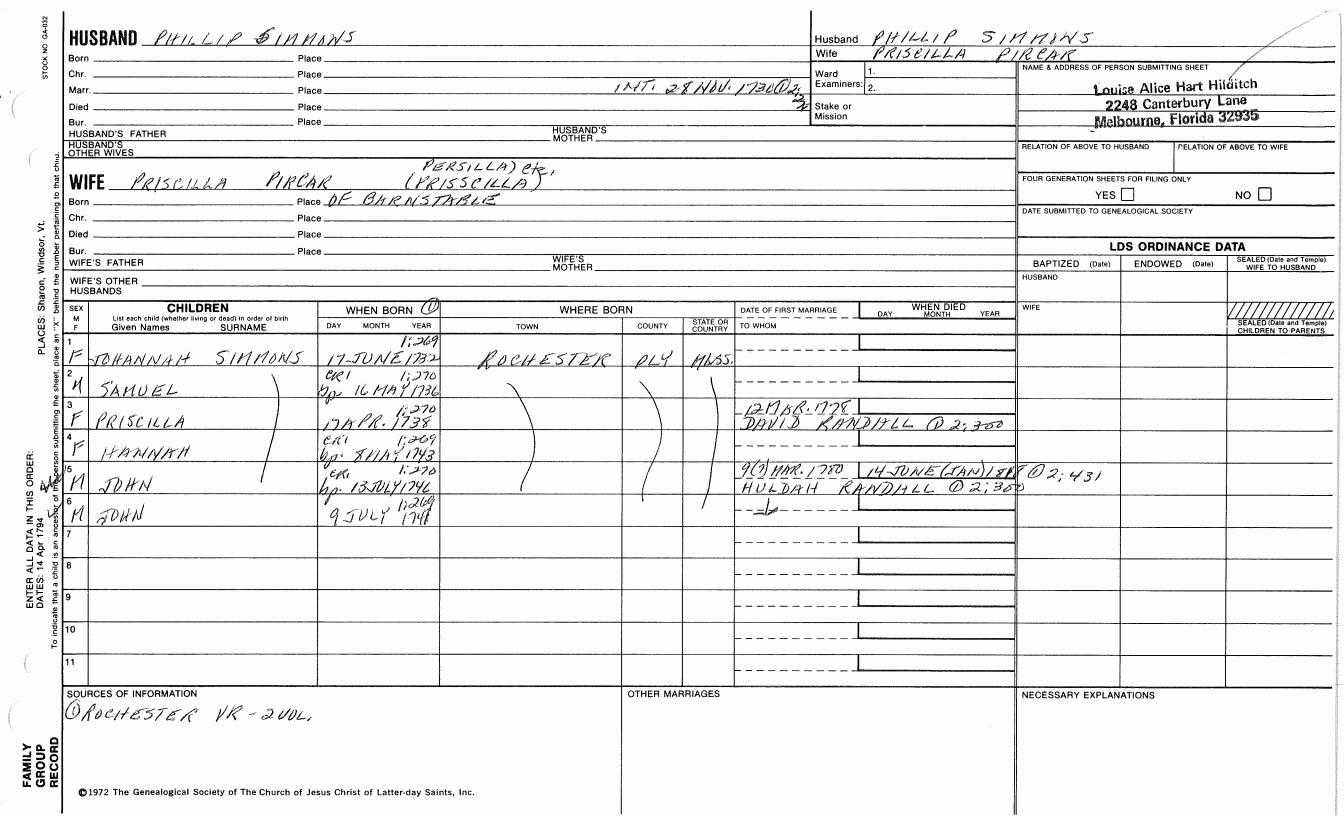 STOCK NO GA-032
HUSBAND PHILLIP SIMMONS
Born Place
Chr. Place
Marr. Place INT. 28 NOV. 1730 ① 2;
Died Place
Bur. Place
HUSBAND'S FATHER HUSBAND'S MOTHER
HUSBAND'S OTHER WIVES
PERSILLA) etc,
WIFE PRISCILLA PIRCAR (PRISSCILLA)
Born Place OF BARNSTABLE
Chr. Place
Died Place
Bur. Place
WIFE'S FATHER WIFE'S MOTHER
WIFE'S OTHER HUSBANDS
Husband PHILLIP SIMMONS
Wife PRISCILLA PIRCAR
Ward Examiners: 1.
2.
Stake or Mission
NAME & ADDRESS OF PERSON SUBMITTING SHEET
Louise Alice Hart Hilditch
2248 Canterbury Lane
Melbourne, Florida 32935
RELATION OF ABOVE TO HUSBAND RELATION OF ABOVE TO WIFE
FOUR GENERATION SHEETS FOR FILING ONLY
YES NO
DATE SUBMITTED TO GENEALOGICAL SOCIETY
LDS ORDINANCE DATA
BAPTIZED (Date) ENDOWED (Date) SEALED (Date and Temple) WIFE TO HUSBAND
HUSBAND
WIFE
SEALED (Date and Temple) CHILDREN TO PARENTS
SEX M F
CHILDREN
List each child (whether living or dead) in order of birth
Given Names SURNAME
WHEN BORN ①
DAY MONTH YEAR
WHERE BORN
TOWN COUNTY STATE OR COUNTRY
DATE OF FIRST MARRIAGE
TO WHOM
WHEN DIED
DAY MONTH YEAR
1 1;269
F JOHANNAH SIMMONS 17 JUNE 1732 ROCHESTER PLY MASS.
2 CR1 1;270
M SAMUEL bp. 16 MAY 1736
3 1;270 12 MAR. 1778
F PRISCILLA 17 APR. 1738 DAVID RANDALL ① 2;300
4 CR1 1;269
F HANNAH bp. 8 MAY 1743
5 CR1 1;270 9(?) MAR. 1780 14 JUNE (JAN) ① 2;431
M JOHN bp. 13 JULY 1746 HULDAH RANDALL ① 2;300
6 1;269
M JOHN 9 JULY 1741
7
8
9
10
11
SOURCES OF INFORMATION
① ROCHESTER VR - 2 VOL.
OTHER MARRIAGES
NECESSARY EXPLANATIONS
©1972 The Genealogical Society of The Church of Jesus Christ of Latter-day Saints, Inc.
FAMILY GROUP RECORD
ENTER ALL DATA IN THIS ORDER:
DATES: 14 Apr 1794
PLACES: Sharon, Windsor, Vt.
To indicate that a child is an ancestor of the person submitting the sheet, place an "X" behind the number pertaining to that child.